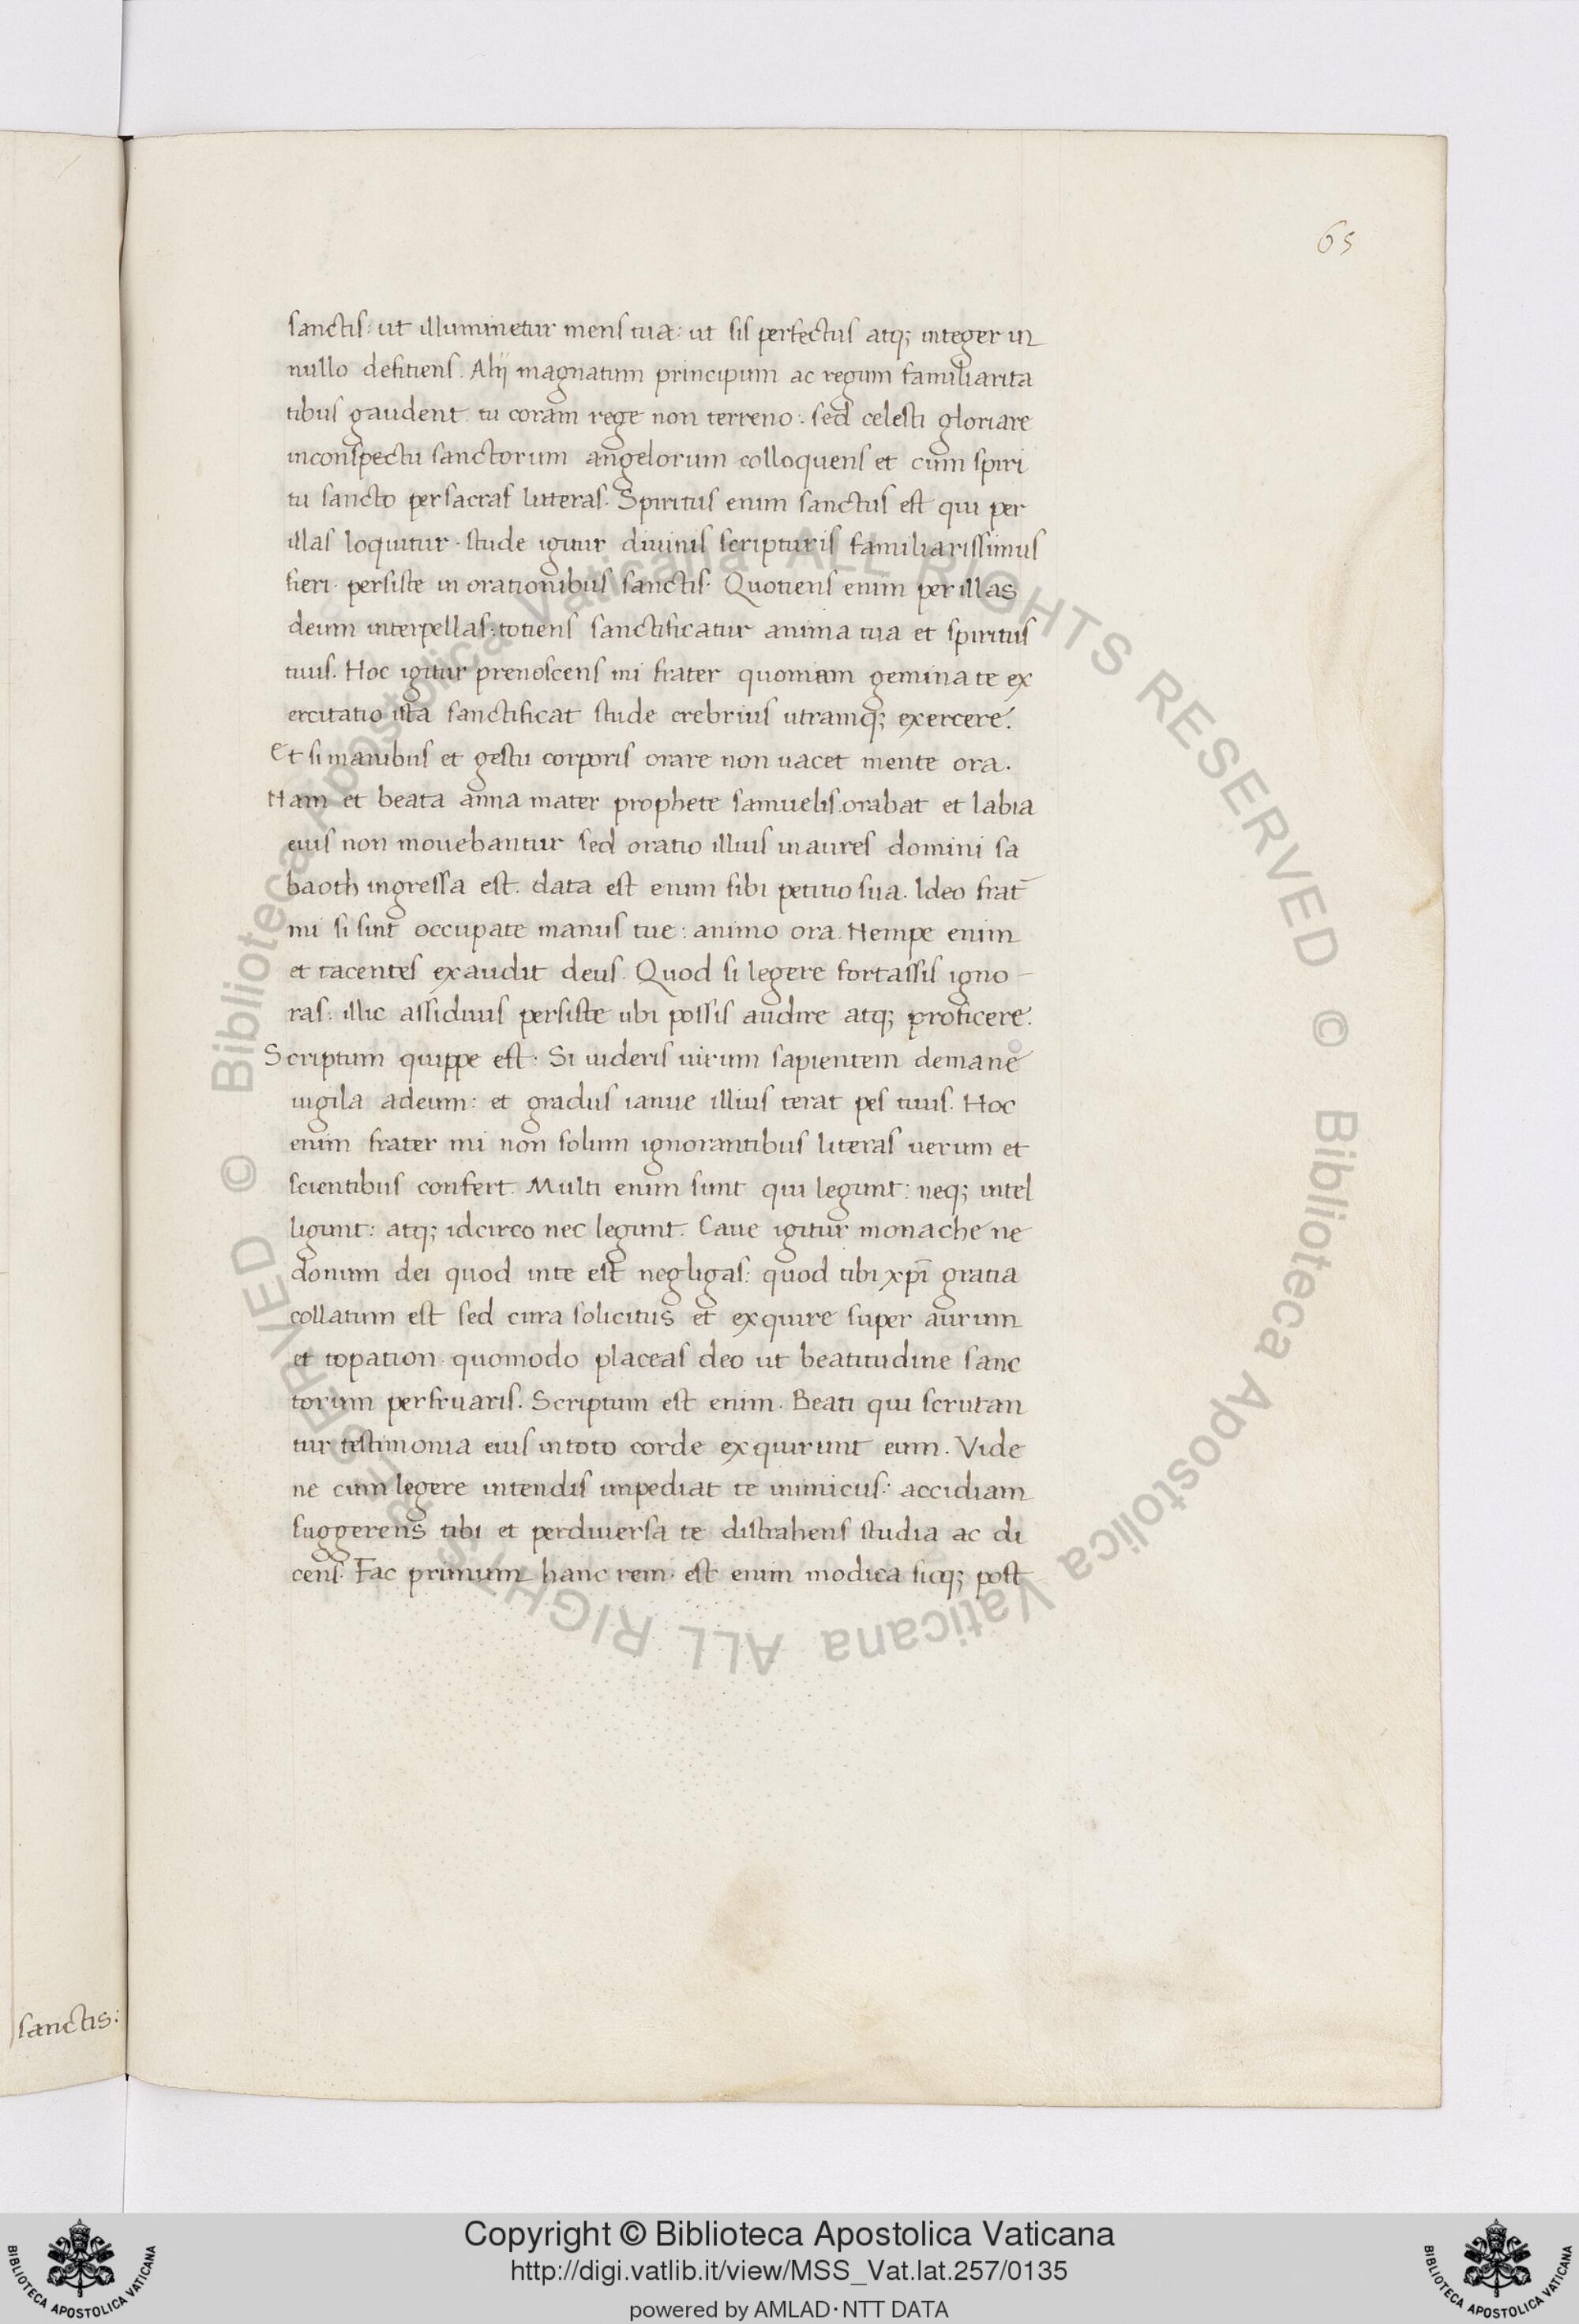 65
sanctis: ut illuminetur mens tua: ut sis perfectus atq; integer in
nullo defitiens. Alij magnatum principum ac regum familiarita
tibus gaudent. tu coram rege non terreno: sed celesti gloriare
inconspectu sanctorum angelorum colloquens et cum spiri
tu sancto per sacras litteras. Spiritus enim sanctus est qui per
illas loquitur. stude igitur diuinis scripturis familiarissimus
fieri. persiste in orationibus sanctis. Quotiens enim per illas
deum interpellas: totiens sanctificatur anima tua et spiritus
tuus. Hoc igitur prenoscens mi frater quoniam gemina te ex
ercitatio ista sanctificat stude crebrius utramq; exercere.
Et si manibus et gestu corporis orare non uacet mente ora.
Nam et beata anna mater prophete samuelis. orabat et labia
eius non mouebantur sed oratio illius in aures domini sa
baoth ingressa est. data est enim sibi petitio sua. Ideo frat̄
mi si sint occupate manus tue: animo ora. Nempe enim
et tacentes exaudit deus. Quod si legere fortassis igno-
ras: illic assiduus persiste ubi possis audire atq; proficere.
Scriptum quippe est. Si uideris uirum sapientem demane
uigila adeum: et gradus ianue illius terat pes tuus. Hoc
enim frater mi non solum ignorantibus literas uerum et
scientibus confert. Multi enim sunt qui legunt: neq; intel
ligunt: atq; idcirco nec legunt. Caue igitur monache ne
donum dei quod inte est negligas: quod tibi xp̄i gratia
collatum est sed cura solicitus et exquire super aurum
et topation. quomodo placeas deo ut beatitudine sanc
torum perfruaris. Scriptum est enim. Beati qui scrutan
tur testimonia eius intoto corde exquirunt eum. Vide
ne cum legere intendis impediat te inimicus: accidiam
suggerens tibi et perdiuersa te distrahens studia ac di
cens. Fac primum hanc rem. est enim modica sicq; post
sanctis:
© Biblioteca Apostolica Vaticana ALL RIGHTS RESERVED
© Biblioteca Apostolica Vaticana ALL RIGHTS RESERVED
Copyright © Biblioteca Apostolica Vaticana
http://digi.vatlib.it/view/MSS_Vat.lat.257/0135
powered by AMLAD·NTT DATA
BIBLIOTECA APOSTOLICA VATICANA
BIBLIOTECA APOSTOLICA VATICANA